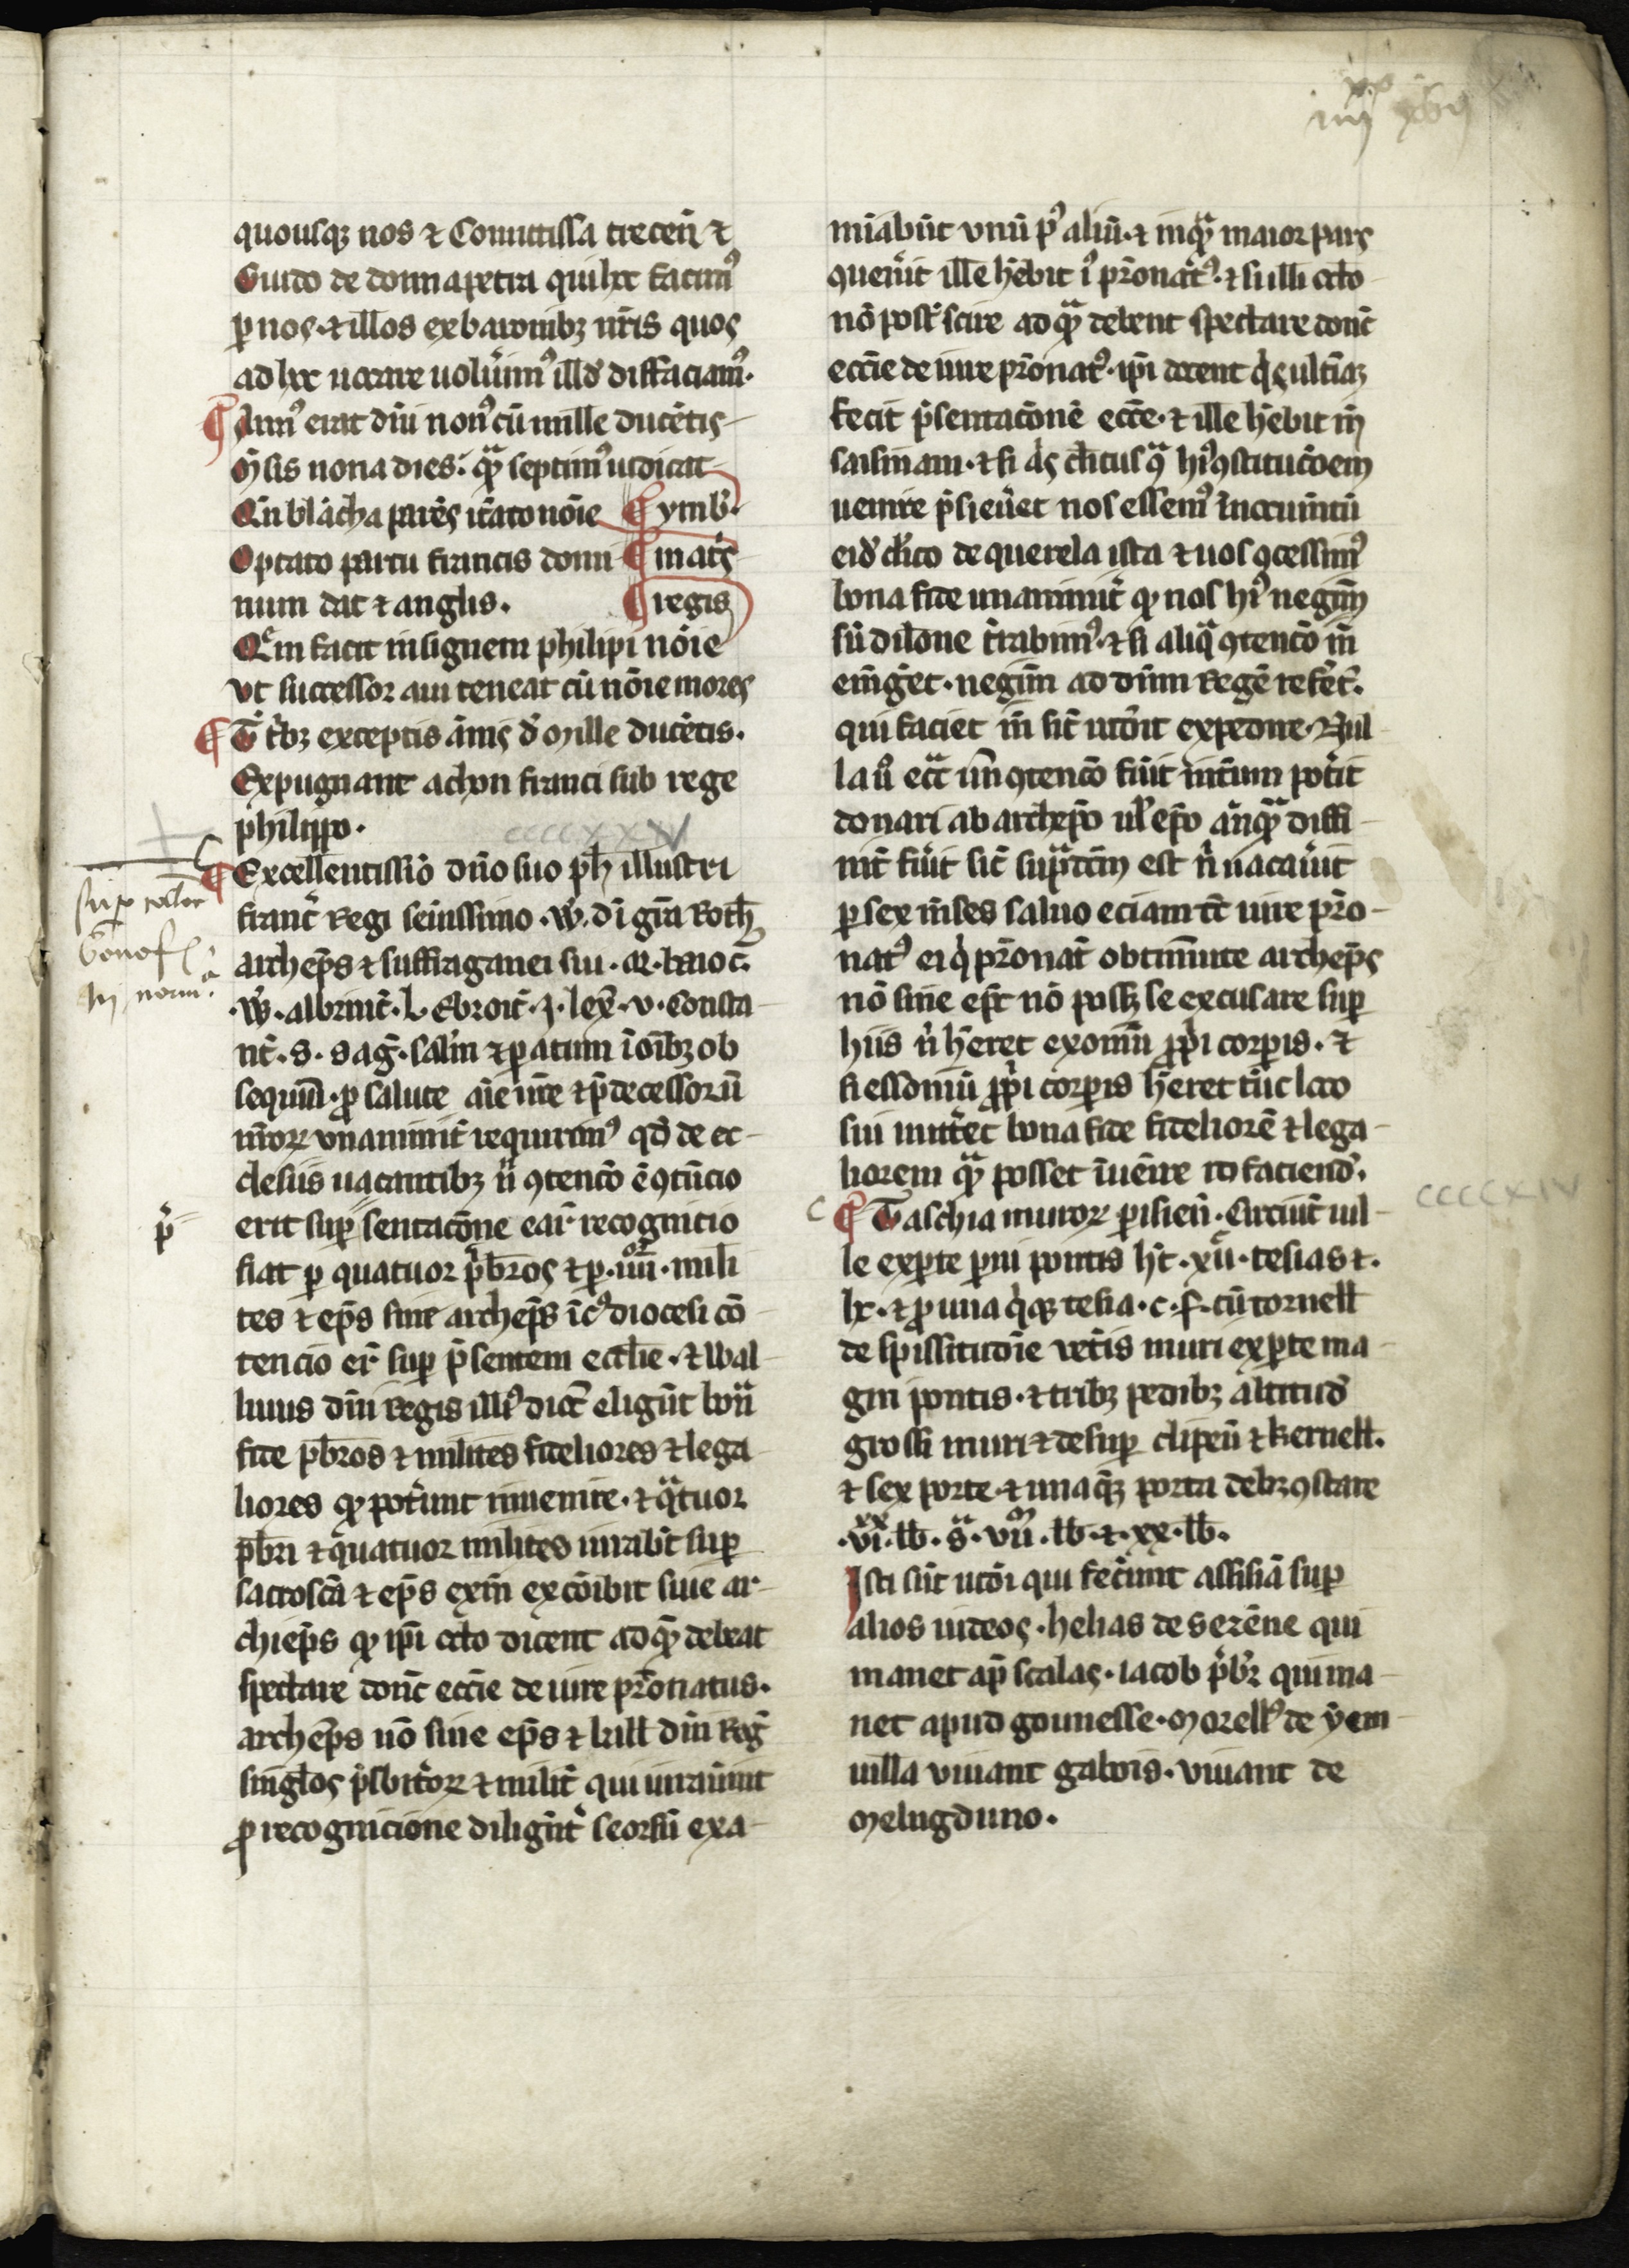 quousq; nos ⁊ Comitissa trecen̄ ⁊
Guido de donnapetra qui hec facim᷒
ꝑ nos· ⁊ illos ex baronibꝫ nr̄is quos
ad hec uocare uoluerim᷒ illd̕ diffaciam᷒·
¶ Ann᷒ erat dn̄i non᷒ cū mille ducētis
Mēsis nona dies· quā septim᷒ indicat
Qn̄ blācha parēs iterato nōie ¶ ymb̕·
Optato partu francis domi ¶ natr̄s
num dat ⁊ anglis· ¶ regis
Quem facit insignem philipi nōie
Ut successor aui teneat cū nōie mores
¶ Tribꝫ exceptis annis d̕ mille ducētis·
Expugnant achon franci sub rege
philippo·
ccccxxxv
¶ Excellentissīo dn̄o suo ph̄ illustri
franc̄ Regi sēnissimo ·W̕· di gr̄a Roth̄
archep̄s ⁊ suffraganei sui · R· baioc̄·
·W̕· albrinc̄· L· Ebroic̄· J· lex̄· V· Consta
nc̄· S· Saḡ· salm̄ ⁊ ꝑatum ī oībꝫ ob
sequiū· ꝓ salute aīe ur̄e ⁊ p̄decessorū
ur̄orꝝ vnanimit̄ requirim᷒ qd̕ de ec
clesiis uacantibꝫ un̄ ꝯtencō ē ꝯtūcio
p̄
erit suꝑ sentacōne eaꝝ recognitio
fiat ꝑ quatuor p̄bros ⁊ ꝑ· iiijor· mili
tes ⁊ ep̄s siue archep̄s ī c᷒ diocesi cō
tencio erit suꝑ p̄sentem eccl̄ie· ⁊ bal
liuus dn̄i Regis illi᷒ dioc̄ eligūt bona
fide p̄bros ⁊ milites fideliores ⁊ lega
liores qd̕ poterunt inuenire· ⁊ quatuor
p̄bri ⁊ quatuor milites iurabūt suꝑ
sacroscā ⁊ ep̄s exm̄ excōibit siue ar
chiep̄s qd̕ ip̄i cito dicent ad quē debeat
spectare donc̄ eccīe de iure pr̄onatus·
archep̄s uō siue ep̄s ⁊ ball̄ dn̄i Reg̕
singl̄os p̄sbit̄orꝝ ⁊ milit̄ qui iurauīnt
ꝓ recognicione diligēnt̄ seorsū exa
mīabūt vnū p᷒ aliū· ⁊ in quā maior pars
ꝯuenīt ille hēbit i᷒ pr̄onat᷒· ⁊ si illi cito
nō post̄ scire ad quē debent spectare donc̄
eccīe de iure pr̄onat᷒· ip̄i docent qis ultīaꝫ
fecit p̄sentacōnē eccīe· ⁊ ille hēbit in̄
saisinam· ⁊ si qis cl̄icus qa hi᷒ ꝯstitucōem
uenire p̄sūēet nos essem᷒ in nocumētū
eid̕ cl̄ico de querela ista ⁊ uos ꝯcessim᷒
bona fide unanimit̄ qd̕ nos hi᷒ negm̄
sn̄ dilōne t̄rabim᷒· ⁊ si aliqa ꝯtencō in̄
em̄g̕et· negm̄ ad dn̄m Regē refēt̄·
qui faciet in̄ sic̄ uid̕it expedire· Nul
la ū ecc̄a un̄ ꝯtencō fūit int̄um pot̄it
donari ab archep̄o ul̄ ep̄o an̄qā diffi
nit̄ fūit sic̄ sup̄dc̄m est n̄ uacauīt
ꝑ sex mēses saluo eciam t̄t iure pr̄o
nat᷒ ei q̄ pr̄onat̄ obtinuīte archep̄s
nō siue ep̄c nō posꝫ se excusare suꝑ
hiis n̄ hēret exoīm ꝓpi corꝑis· ⁊
si essoniū ꝓpi corꝑis hēret tūc loco
sui mit̄et bona fide fideliorē ⁊ lega
liorem quā posset īuēire id faciend̕·
¶ Taschia murorꝝ ꝑisien̄· Circuit̄ uil
le ex ꝑte ꝑui pontis h̄t· xijc· tesias ⁊·
lx· ⁊ ꝓ una qaqꝫ tesia· c· ꝭ· cū tornell̄
de spissitudīe vet̄is muri ex ꝑte ma
gni pontis· ⁊ tribꝫ pedibꝫ altitud̕
grossi muri ⁊ desuꝑ clipeū ⁊ kernell̄·
⁊ sex porte· ⁊ una qaqꝫ porta debꝫ ꝯstare
·vixx· lb̄· sa· viijm· lb̄· ⁊· xx· lb̄·
Isti sūt iudei qui fecerunt assisiā suꝑ
alios iudeos· helias de serēne qui
manet ap̄ scalas· iacob p̄br̄ qui ma
net apud gounesse· Morell᷒ de yem
uilla viuant gabois· viuant de
Melugduno·
ccccxiv